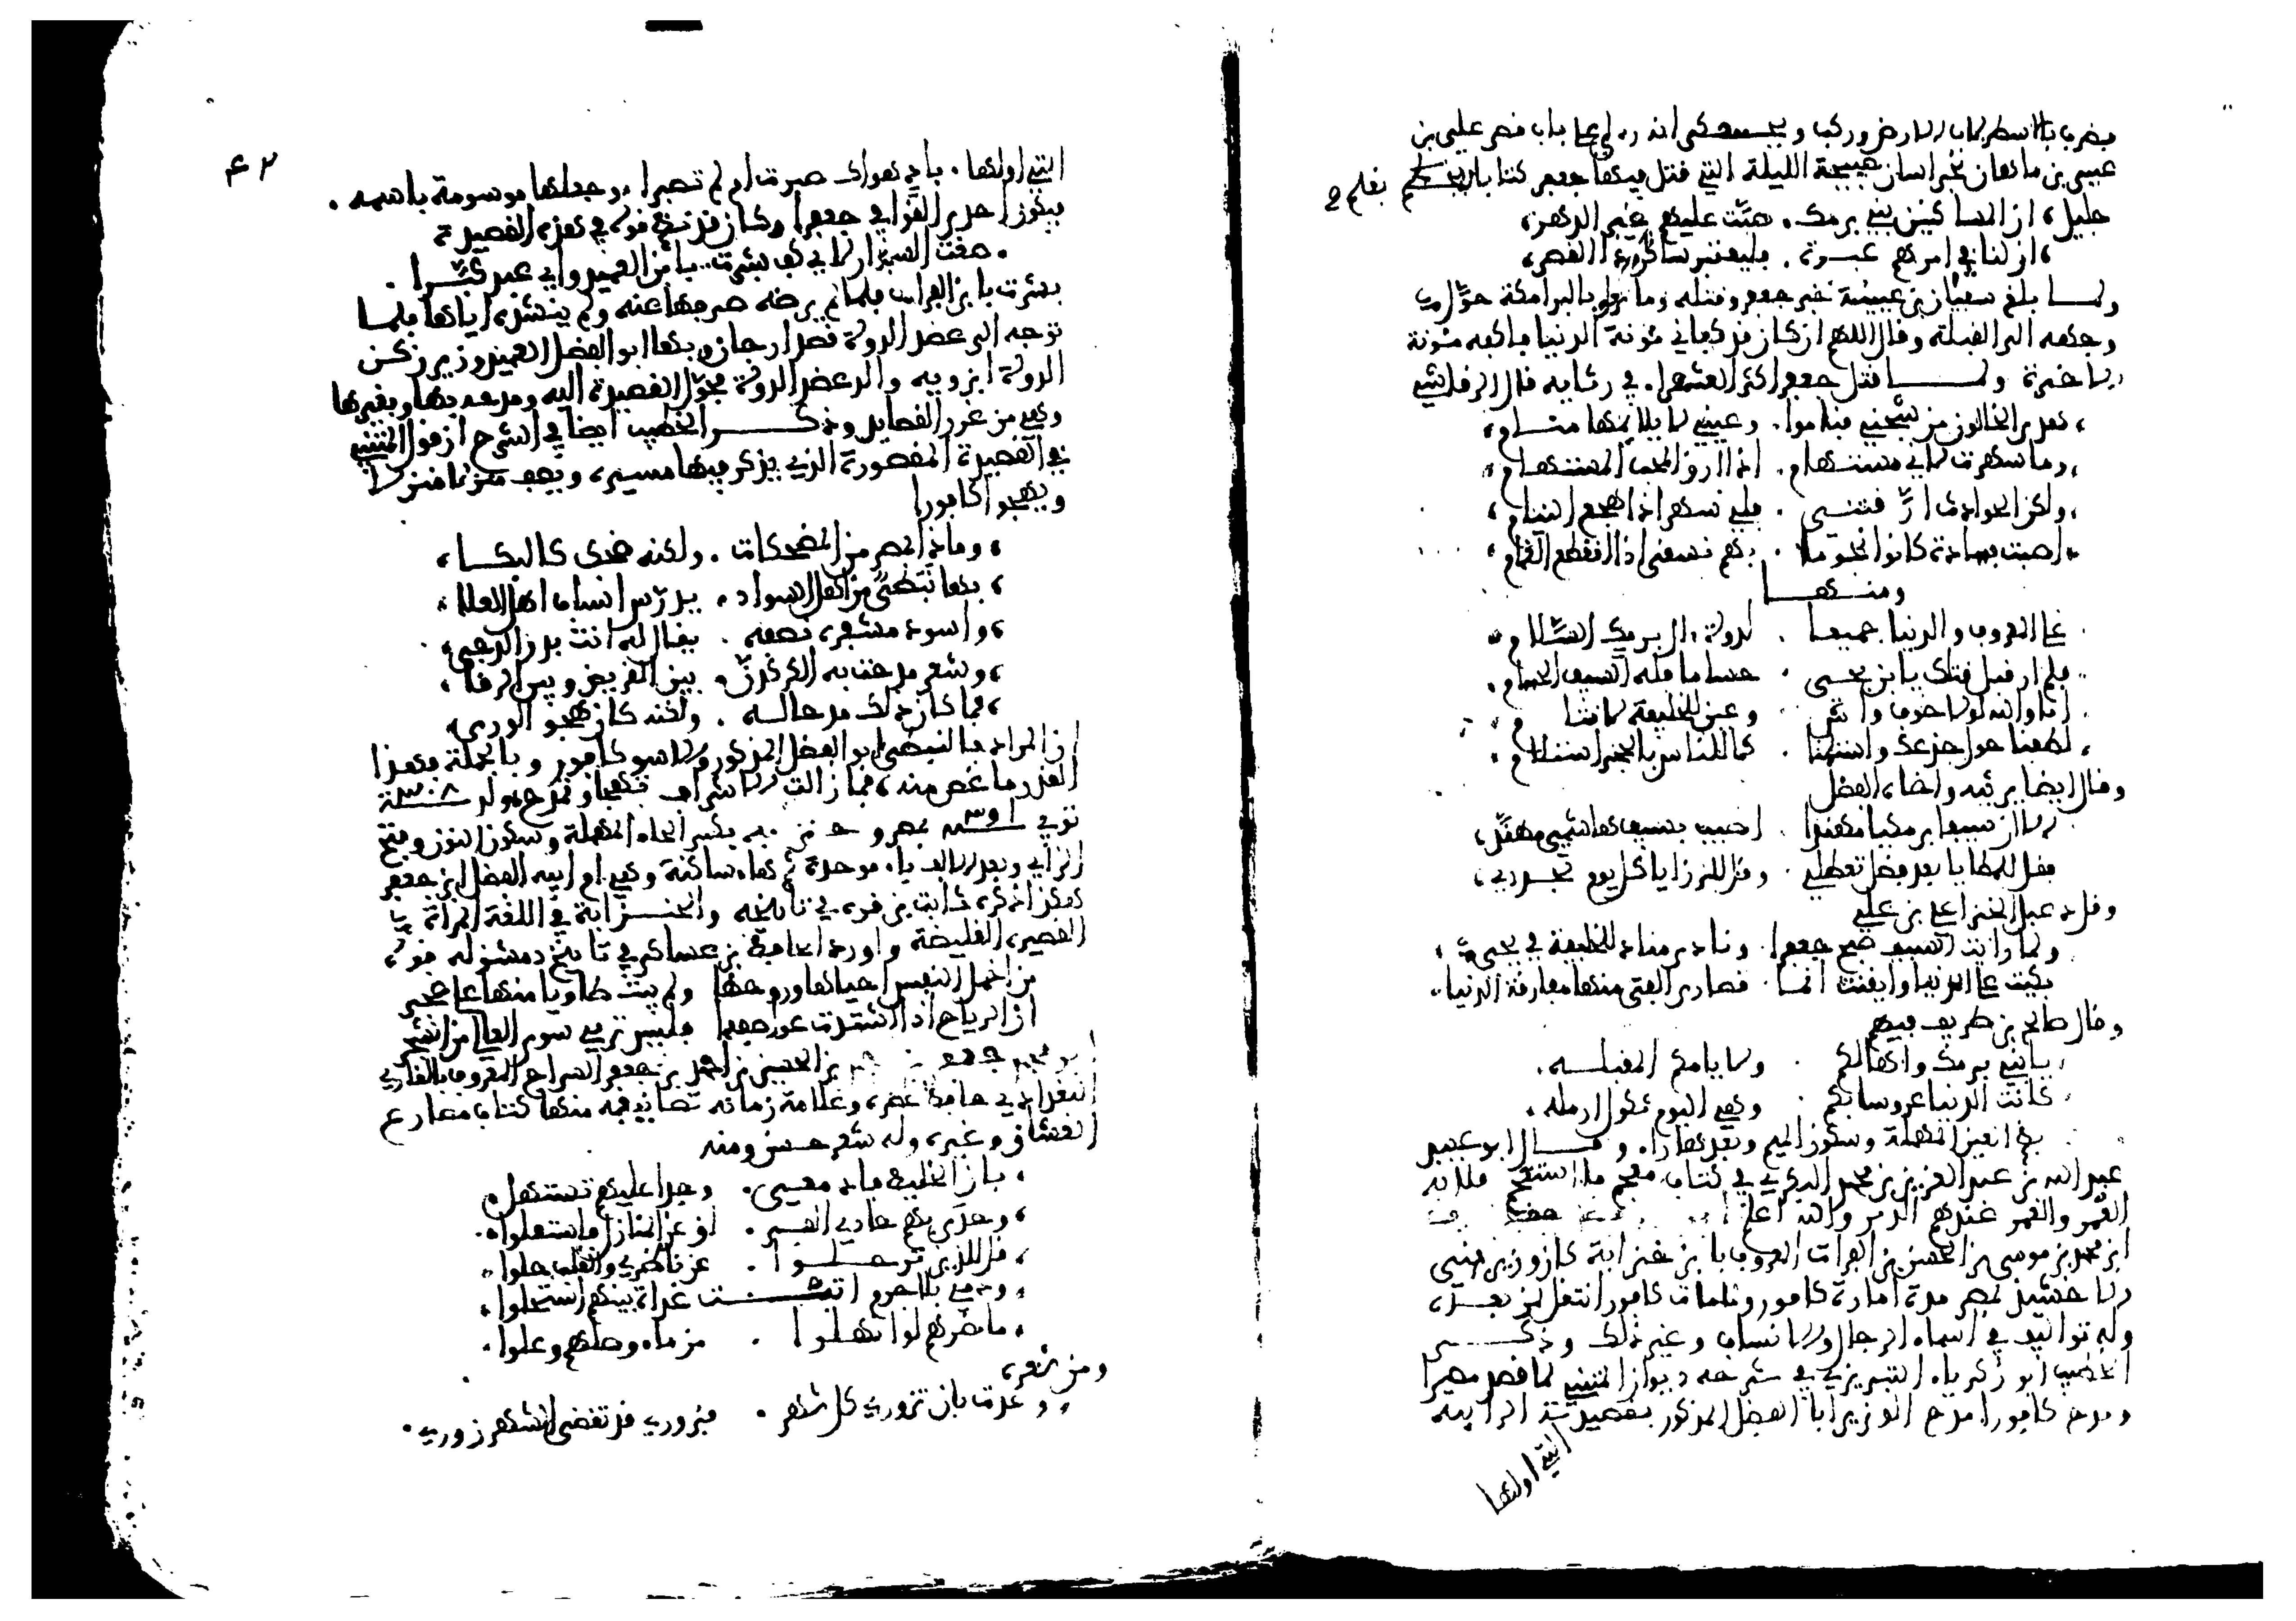 فضرب بالاسطرلاب الارض وركب ويحكى انه رءي على باب قصر علي بن
عيسى بن ماهان بخراسان صبيحة الليلة التي قتل فيها جعفر كتاب بقلم
جليل، ان المساكين بني برمك. صبت عليهم غير الدهر،
، ان لنا في امرهم عبرة. فليعتبر ساكن ذا القصر،
ولما بلغ سفيان بن عيينة خبر جعفر وقتله وما نزل بالبرامكة حوّل
وجهه الى القبلة وقال اللهم ان كان قد كفاني مؤنة الدنيا فاكفه مئونة
الاخرة ولما قتل جعفر اكثر الشعرا. في رثايه قال الرقاشي
، هدى الخالون من شجني فناموا. وعيني لا يلايمها منام،
، وما سهرت لاني مستهام. اذا ارق المحب المستهام،
، ولكن الحوادث ارّقتني. فلي سهر اذا هجع النيام،
، اصبت بسادة كانوا نجوما. بهم نسقى اذا انقطع الغمام،
ومنها
على المعروف والدنيا جميعا. لدولة ال برمك السلام
فلم ار قبل قتلك يا بن يحيى. حساما فله السيف الحسام.
اما والله لولا خوف واش. وعين للخليفة لا تنام
، لطفنا حول جذعك واستلمنا. كما للناس بالحجر استلام،
وقال ايضا يرثيه واخاه الفضل
الا ان سيفا برمكيا مهندا. اصيب بسيف هاشمي مهند،
فقل للعطايا بعد فضل تعطلي. وقل للرزايا كل يوم تجددي،
وقال دعبل الخزاعي بن علي
ولما رايت السيف صبح جعفرا. ونادى مناد للخليفة في يحيى،
بكيت على الدنيا وايقنت انما. قصارى الفتى منها مفارقة الدنيا.
وقال صالح بن طريف فيهم
، يا بني برمك واها لكم. ولايامكم المقبله.
كانت الدنيا عروسا بكم. وهي اليوم ثكول ارمله،
العين المهملة وسكون الميم وبعدها را. وقال ابو عبيد
عبد الله بن عبد العزيز بن محمد البكري في كتاب معجم ما استعجم قلاية
العُمر والعمر عندهم الدير والله اعلم
ابن محمد بن موسى بن الحسن بن الفرات المعروف بابن حنزابة كان وزير بني
الاخشيد بمصر مدة امارة كافور ولما مات كافور استقل
وله تواليف في اسماء الرجال والانساب وغير ذلك وذكر
الخطيب ابو زكريا. التبريزي في شرحه ديوان المتنبي لما قصد مصرا
ومدح كافورا مدح الوزير ابا الفضل المذكور بقصيدته الرايية
التي اولها
٤٢
التي اولها. باد هواك صبرت ام لم تصبرا. وجعلها موسومة باسمه.
فتكون احدى القوافي جعفرا وكان قد نظم قوله في هذه القصيدة
. صغت السوار لاي كف بشرت. بابن العميد واي عبد كبّرا.
بشرت بابن الفرات فلما لم يرضه صرفها عنه ولم ينشده اياها فلما
توجه الى عضد الدولة قصد ارجان وبها ابو الفضل العميد وزير ركن
الدولة ابن بويه والد عضد الدولة فحوّل القصيدة اليه ومدحه بها وبغيرها
وهي من غرر القصايد وذكر الخطيب ايضا في الشرح ان قول المتنبي
في القصيدة المقصورة الذي يذكر فيها مسيره ويصف منزلا منزلا
ويهجو كافورا
، وماذا بمصر من المضحكات. ولكنه ضحك كالبكا،
، بها نبطي من اهل السواد. يدرّس انساب اهل العلا،
، واسود مشفره نصفه. يقال له انت بدر الدجى،
، وشعر مدحت به الكركدنّ. بين القريض وبين الرقا،
، فما كان ذلك مدحا له. ولكنه كان هجو الورى،
ان المراد بالنبطي ابو الفضل المذكور والاسود كافور وبالجملة فهذا
القدر ما غض منه، فما زالت الاشراف تهجى وتمدح، ولد ٣٠٨ سنة
توفي ٣٩١ بمصر وحنزابة بكسر الحاء المهملة وسكون النون وفتح
الزاي وبعد الالف باء موحدة ثم هاء ساكنة وهي ام ابيه الفضل ابن جعفر
هكذا ذكره ثابت بن قره في تاريخه والحنزابة في اللغة المراة
القصيرة الغليضة واورد الحافظ بن عساكر في تاريخ دمشق له قوله
من اخمل النفس احياها وروحها ولم يبت طاويا منها على ضجر
ان الرياح اذا اشتدت عواصفها فليس ترمي سوى العالي من الشجر
ابو محمد جعفر بن الحسين بن احمد بن جعفر السراج المعروف بالقاري
البغدادي حافظ عصره وعلامة زمانه تصانيفه منها كتاب مصارع
العشاق وغيره وله شعر حسن ومنه
، بان الخليط فادمعي. وجدا عليهم تستهل
، وحدى بهم حادي الفراق. عن المنازل فاستقلوا.
، قل للذين ترحلوا. عن ناظري والقلب حلوا.
، ودمي بلا جرم اتيت غداة بينهم استحلوا،
، ما ضرهم لو انهلوا. من ماء وصلهم وعلوا.
ومن شعره
، وعدت بان تزوري كل شهر. فزوري قد تقضى الشهر زوري.